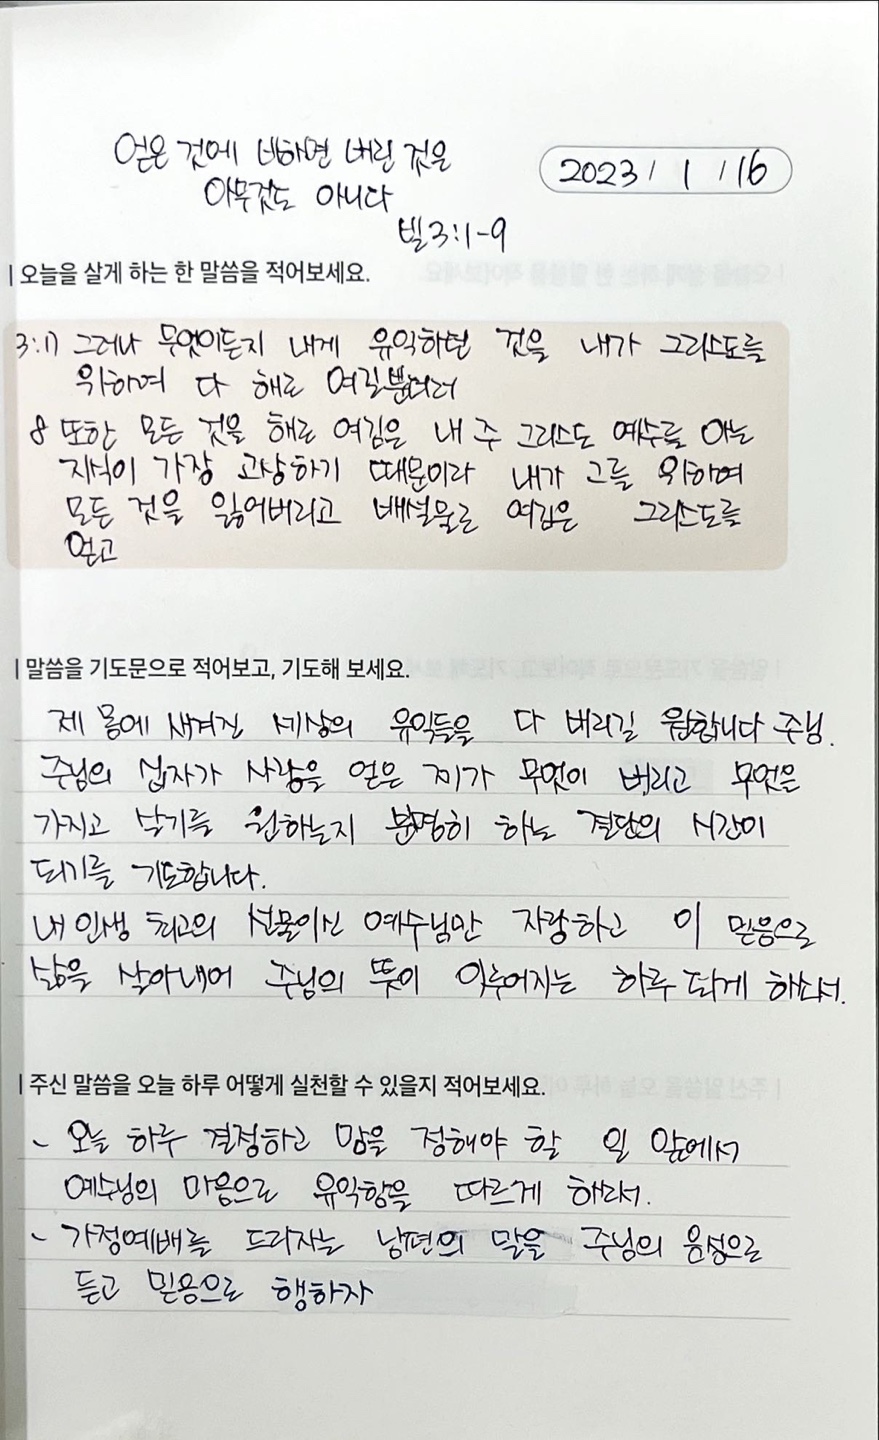 얻은 것에 비하면 버린 것은
아무것도 아니다
2023 / 1 / 16
빌 3:1-9
| 오늘을 살게 하는 한 말씀을 적어보세요.
3:17 그러나 무엇이든지 내게 유익하던 것을 내가 그리스도를
위하여 다 해로 여길뿐더러
8 또한 모든 것을 해로 여김은 내 주 그리스도 예수를 아는
지식이 가장 고상하기 때문이라 내가 그를 위하여
모든 것을 잃어버리고 배설물로 여김은 그리스도를
얻고
| 말씀을 기도문으로 적어보고, 기도해 보세요.
제 몸에 새겨진 세상의 유익들을 다 버리길 원합니다 주님.
주님의 십자가 사랑을 얻은 제가 무엇이 버리고 무엇을
가지고 살기를 원하는지 분명히 하는 결단의 시간이
되기를 기도합니다.
내 인생 최고의 선물이신 예수님만 자랑하고 이 믿음으로
삶을 살아내어 주님의 뜻이 이루어지는 하루 되게 하소서.
| 주신 말씀을 오늘 하루 어떻게 실천할 수 있을지 적어보세요.
- 오늘 하루 결정하고 맘을 정해야 할 일 앞에서
예수님의 마음으로 유익함을 따르게 하소서.
- 가정예배를 드리자는 남편의 말을 주님의 음성으로
듣고 믿음으로 행하자